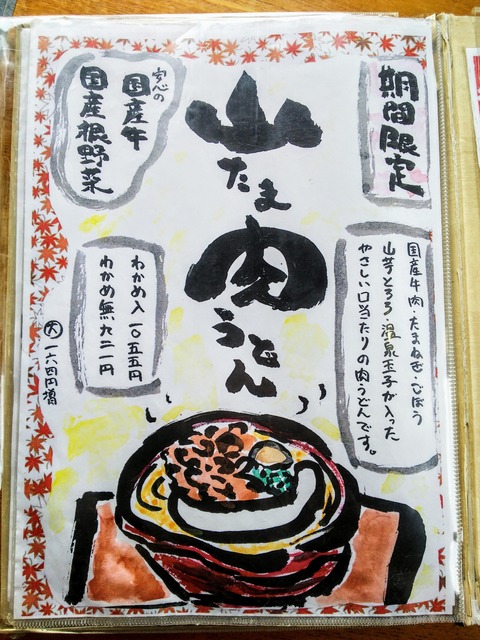 期間限定
国産牛肉・たまねぎ・ごぼう
山芋とろろ・温泉玉子が入った
やさしい口当たりの肉うどんです。
山たま肉うどん
安心の
国産牛
国産根野菜
わかめ入 一〇五五円
わかめ無 九二一円
大 一六四円増